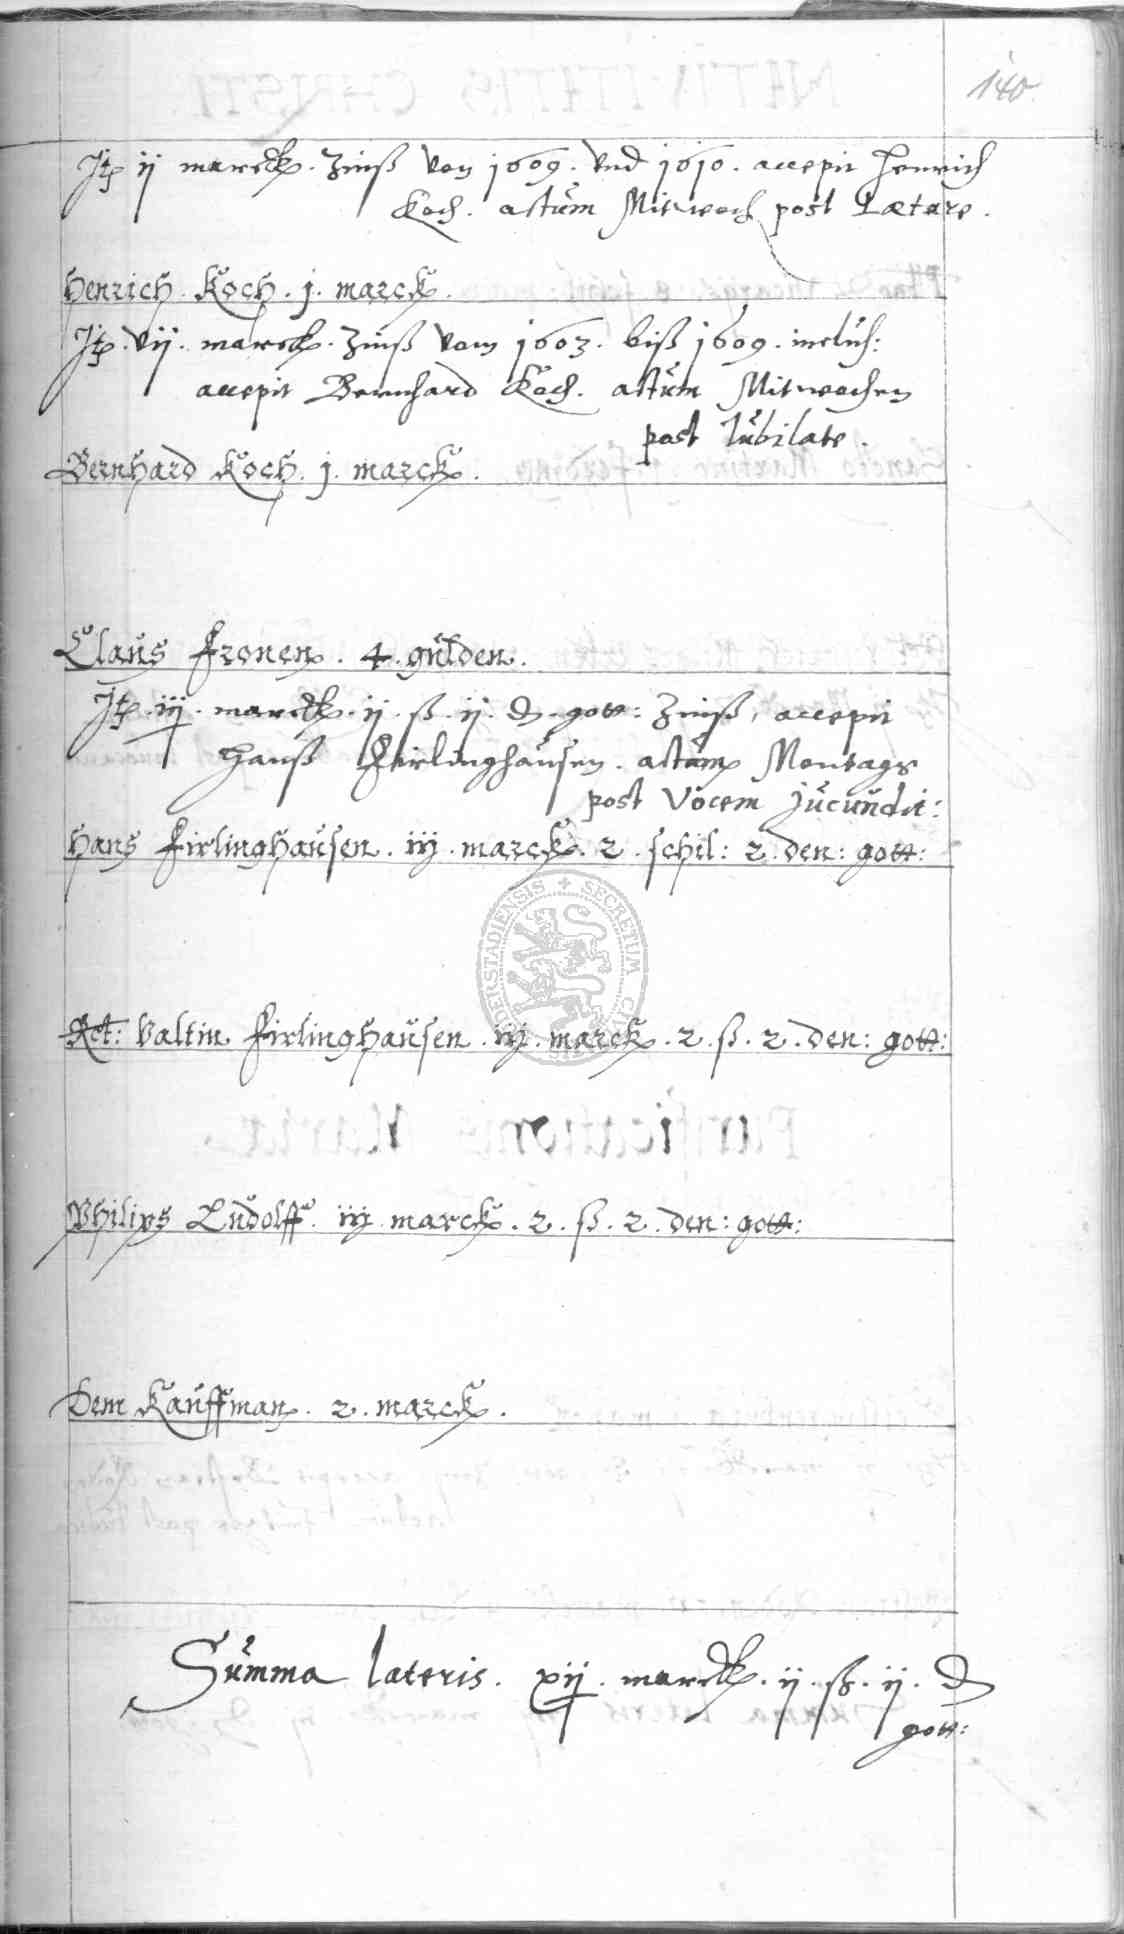 140
Itẽ ij marck. Zinß von 1609. vnd 1610. accepit Henrich
Koch. actum Mitwoch post Lætare.
Henrich Koch. j. marck.
Itẽ. vij. marck. Zinß vom 1603. biß 1609. inclus:
accepit Bernhard Koch. actum Mitwochen
post Jubilate.
Bernhard Koch. j. marck.
Claus Fronen. 4. gulden.
Itẽ. iij. marck. ij. ß. ij. d. gott: Zinß, accepit
Hanß Firlinghausen. actum Montags
post Vocem Jucundit:
Hans Firlinghausen. iij. marck. 2. schil: 2. den: gott:
DERSTADIENSIS SECRETUM
Rct: Valtin Firlinghausen. iij. marck. 2. ß. 2. den: gott:
Philips Ludolff. iij. marck. 2. ß. 2. den: gott:
Dem Kauffman. 2. marck.
Summa lateris. xij. marck. ij. ß. ij. d
gott: